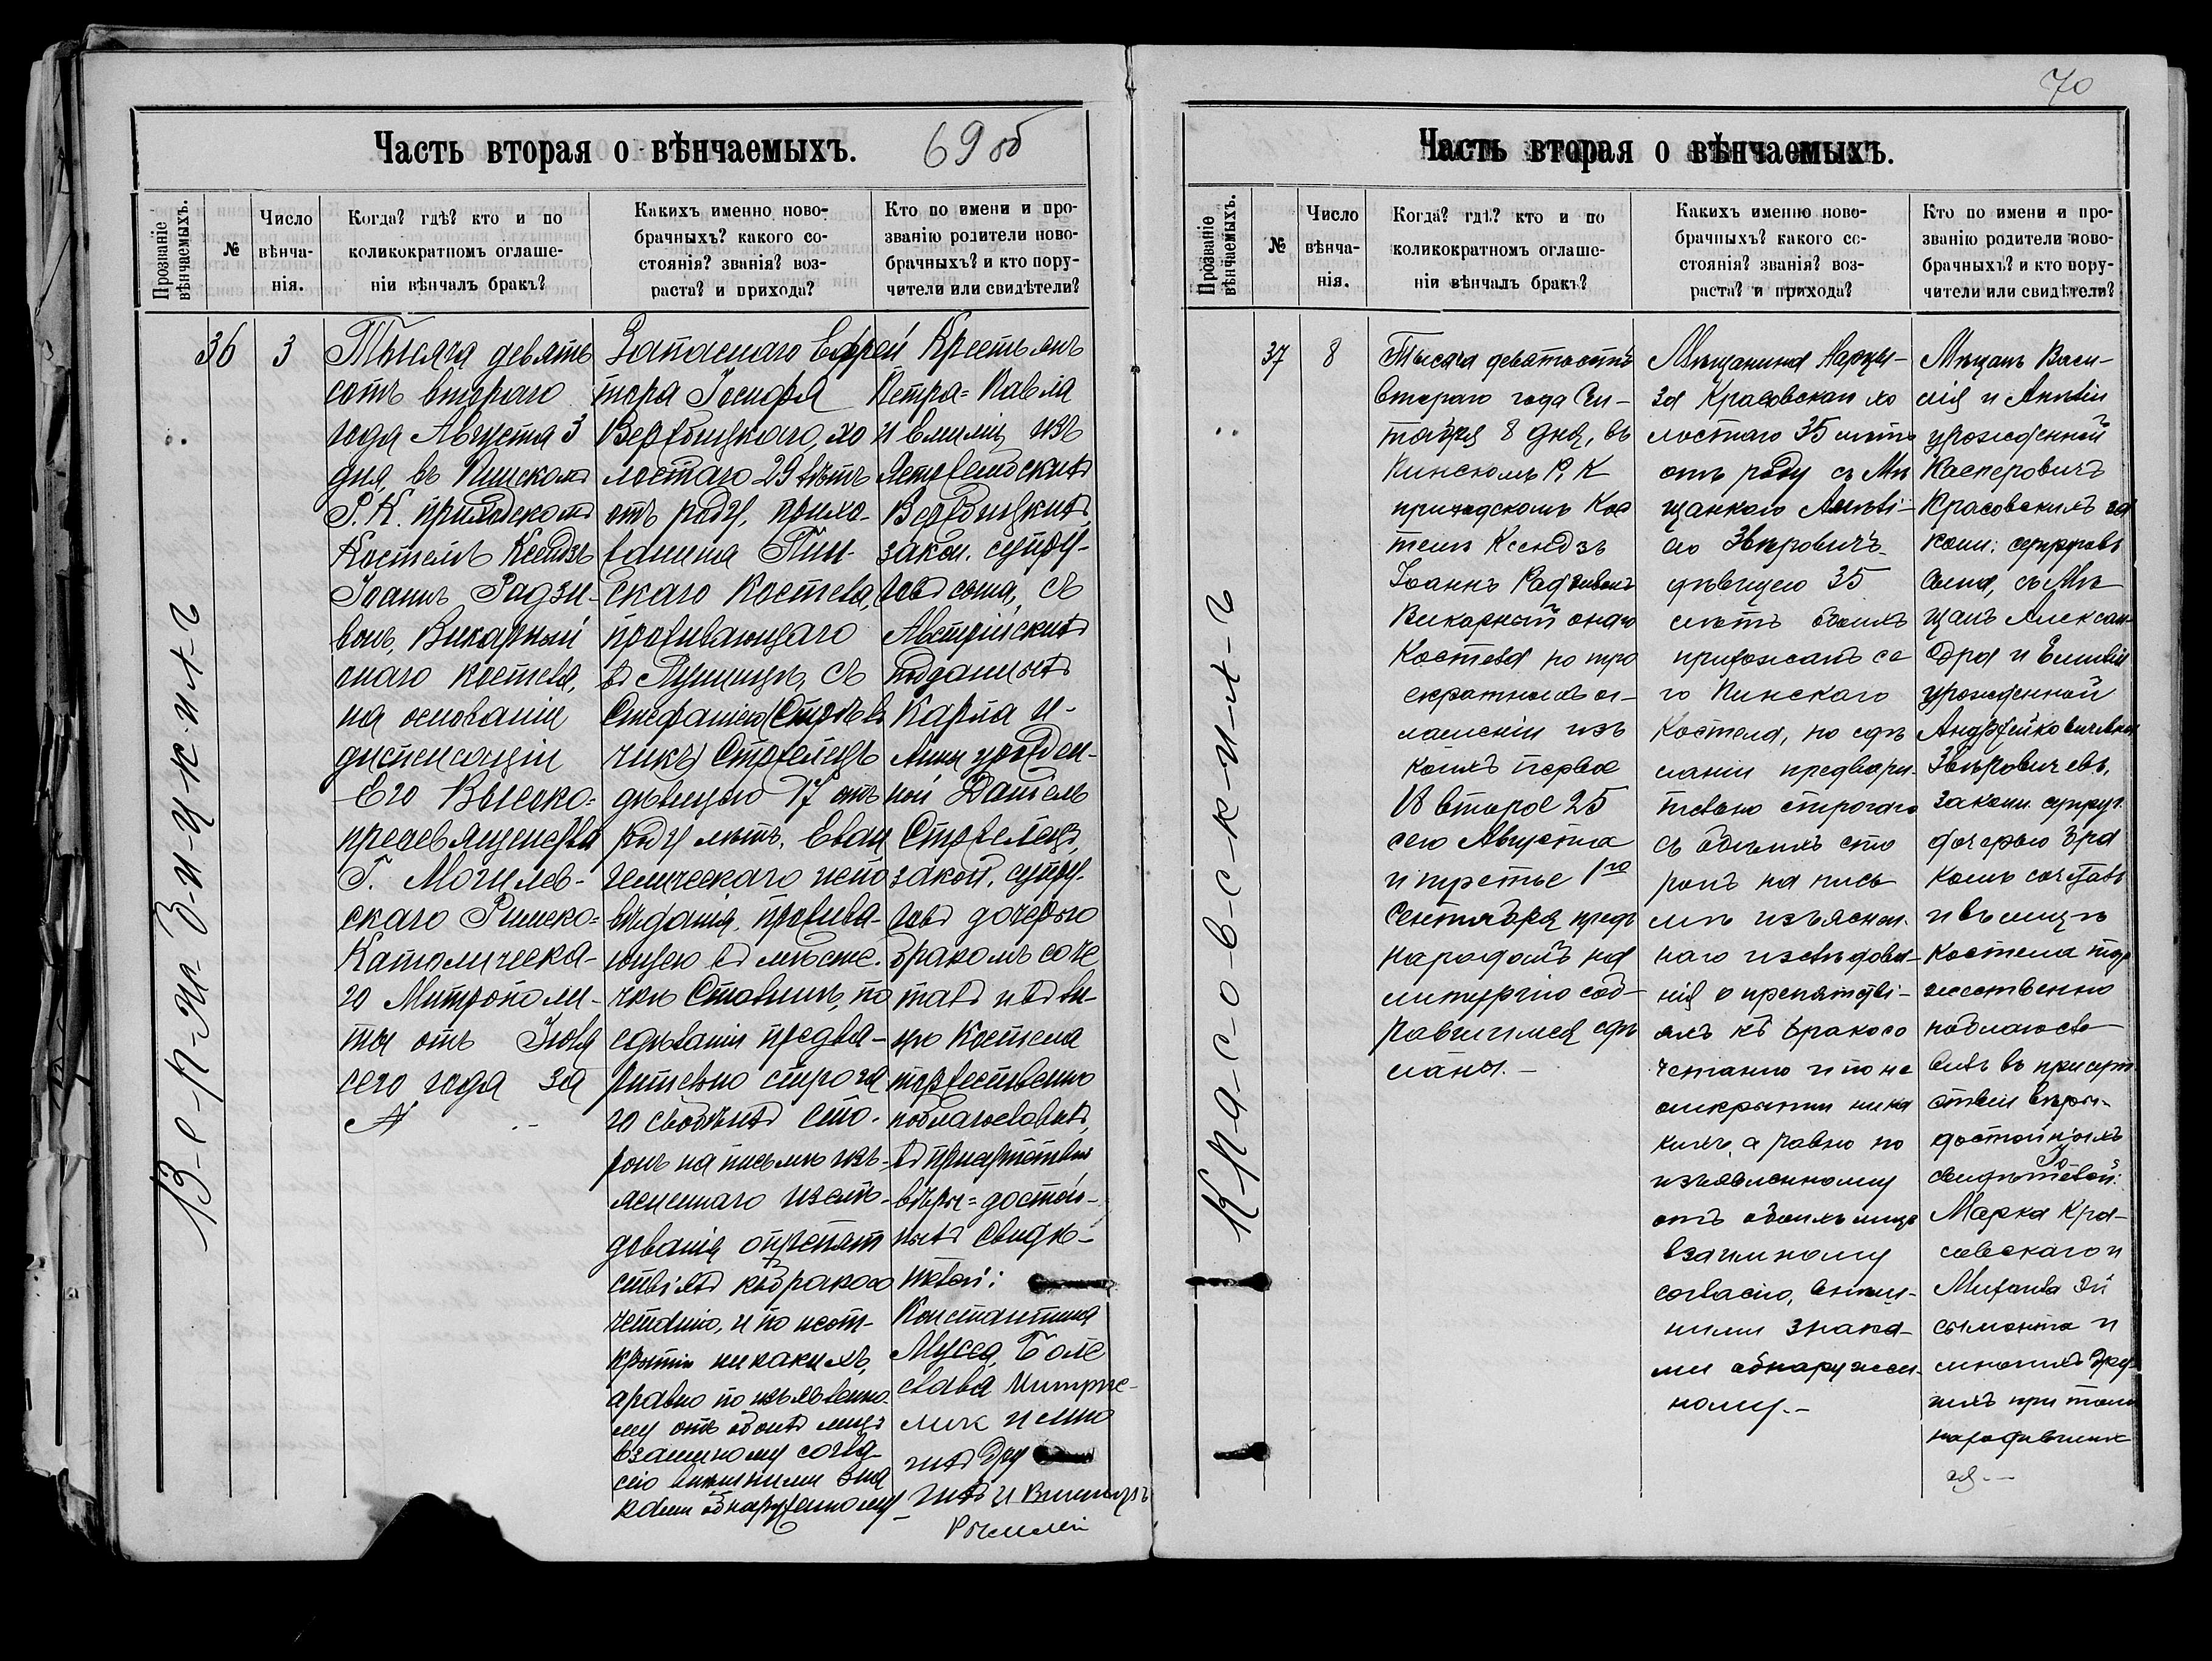 70
Часть вторая о вѣнчаемыхъ.
69 об
Прозваніе вѣнчаемыхъ.
№
Число вѣнча-
нія.
Когда? гдѣ? кто и по
коликократномъ оглаше-
ніи вѣнчалъ бракъ?
Какихъ именно ново-
брачныхъ? какого со-
стоянія? званія? воз-
раста? и прихода?
Кто по имени и про-
званію родители ново-
брачныхъ? и кто пору-
чители или свидѣтели?
36
3
Тысяча девять
сотъ второго
года Августа 3
дня, въ Пинскомъ
Р. К. приходскомъ
Костелѣ Ксендзъ
Іоаннъ Радзи-
вонъ, Викарный
онаго костела,
на основаніи
диспенсаціи
Его Высоко-
преосвященства
Г. Могилев-
скаго Римско-
Католическа-
го Митрополи-
ты отъ Іюля
сего года за
№
Запаснаго Ефрей
тора Іосифа
Вербицкаго, хо
лостаго 29 лѣтъ
отъ роду, прихо-
жанина Пин-
скаго Костела,
проживающаго
въ Лунинцѣ, съ
Стефаніею
чикъ) Стрелецъ
дѣвицею 17 отъ
роду лѣтъ, Еван
гелическаго испо
вѣданія, прожива-
ющею въ мѣсте-
чкѣ по
сдѣланіи предва-
рительно строга
го съ обѣихъ сто-
ронъ на письмѣ изъ-
ясненнаго изслѣ-
дованія о препят
ствіяхъ къ бракосо
четанію, и по неот-
крытіи никакихъ,
а равно по изъявленно-
му отъ обоихъ лицъ
взаимному согла-
сію внѣшними зна
ками обнаруженному
Крестьянъ
Петра-Павла
и Емиліи изъ
Вербицкихъ
закон. супру-
говъ сына, съ
Австрійскихъ
подданныхъ
Карла и
Анны урожден-
ной Даніель
Стрелецъ,
закон. супру-
говъ дочерью
бракомъ соче
талъ и въ ли-
цѣ Костела
торжественно
поблагословилъ,
въ присутствіи
вѣры-достой-
ныхъ свидѣ-
телей:
Константина
Болѣ
слава
и мно
гихъ дру
гихъ
В-е-р-б-и-ц-к-и-х-ъ
Часть вторая о вѣнчаемыхъ.
Прозваніе вѣнчаемыхъ.
№
Число
вѣнча-
нія.
Когда? гдѣ? кто и по
коликократномъ оглаше-
ніи вѣнчалъ бракъ?
Какихъ именно ново-
брачныхъ? какого со-
стоянія? званія? воз-
раста? и прихода?
Кто по имени и про-
званію родители ново-
брачныхъ? и кто пору-
чители или свидѣтели?
37
8
Тысяча девятьсотъ
второго года Сен-
тября 8 дня, въ
Пинскомъ Р. К
приходскомъ Кос
телѣ Ксендзъ
Іоаннъ Радзивонъ
Викарный онаго
Костела по тро
екратномъ ог-
лашеніи изъ
коихъ первое
18 второе 25
сего Августа
и третье 1го
Сентября предъ
народомъ на
литургію соб-
равшимся сдѣ
ланы.-
Мѣщанина Нарци-
за Красовскаго хо
лостаго 35 лѣтъ
отъ роду съ Мѣ
щанкою Амелі-
ею Звѣровичъ
дѣвицею 35
лѣтъ обоихъ
прихожанъ се
го Пинскаго
Костела, по сдѣ
ланіи предвари-
тельно строгаго
съ обѣихъ сто
ронъ на пись
мѣ изъяснен-
наго изслѣдова-
нія о препятстві-
яхъ къ бракосо
четанію и по не
открытіи ника
кихъ, а равно по
изъявленному
отъ обоихъ лицъ
взаимному
согласію, внѣш-
ними знака-
ми обнаружен-
ному.-
Мѣщанъ Васи-
лія и Амеліи
урожденной
Касперовичъ
Красовскихъ за
кон. супруговъ
сына, съ Мѣ
щанъ Алексан-
дра и Емиліи
урожденной
Звѣровичевъ,
законн. супруг.
дочерью бра
комъ сочеталъ
и въ лицѣ
Костела тор
жественно
поблагосло-
вилъ въ присут
ствіи вѣры-
достойныхъ
свидѣтелей:
Марка Кра-
совскаго и
Михаила Эй
сымонта и
многихъ дру-
гихъ при томъ
находившихс
я.-
К-р-а-с-о-в-с-к-и-х-ъ